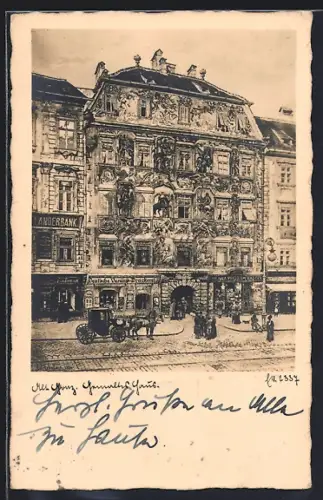 ÄNDERBANK
Alt Graz, Gemaltes Haus.
fr 2337
Herzl. Grüße an Alle
zu Hause